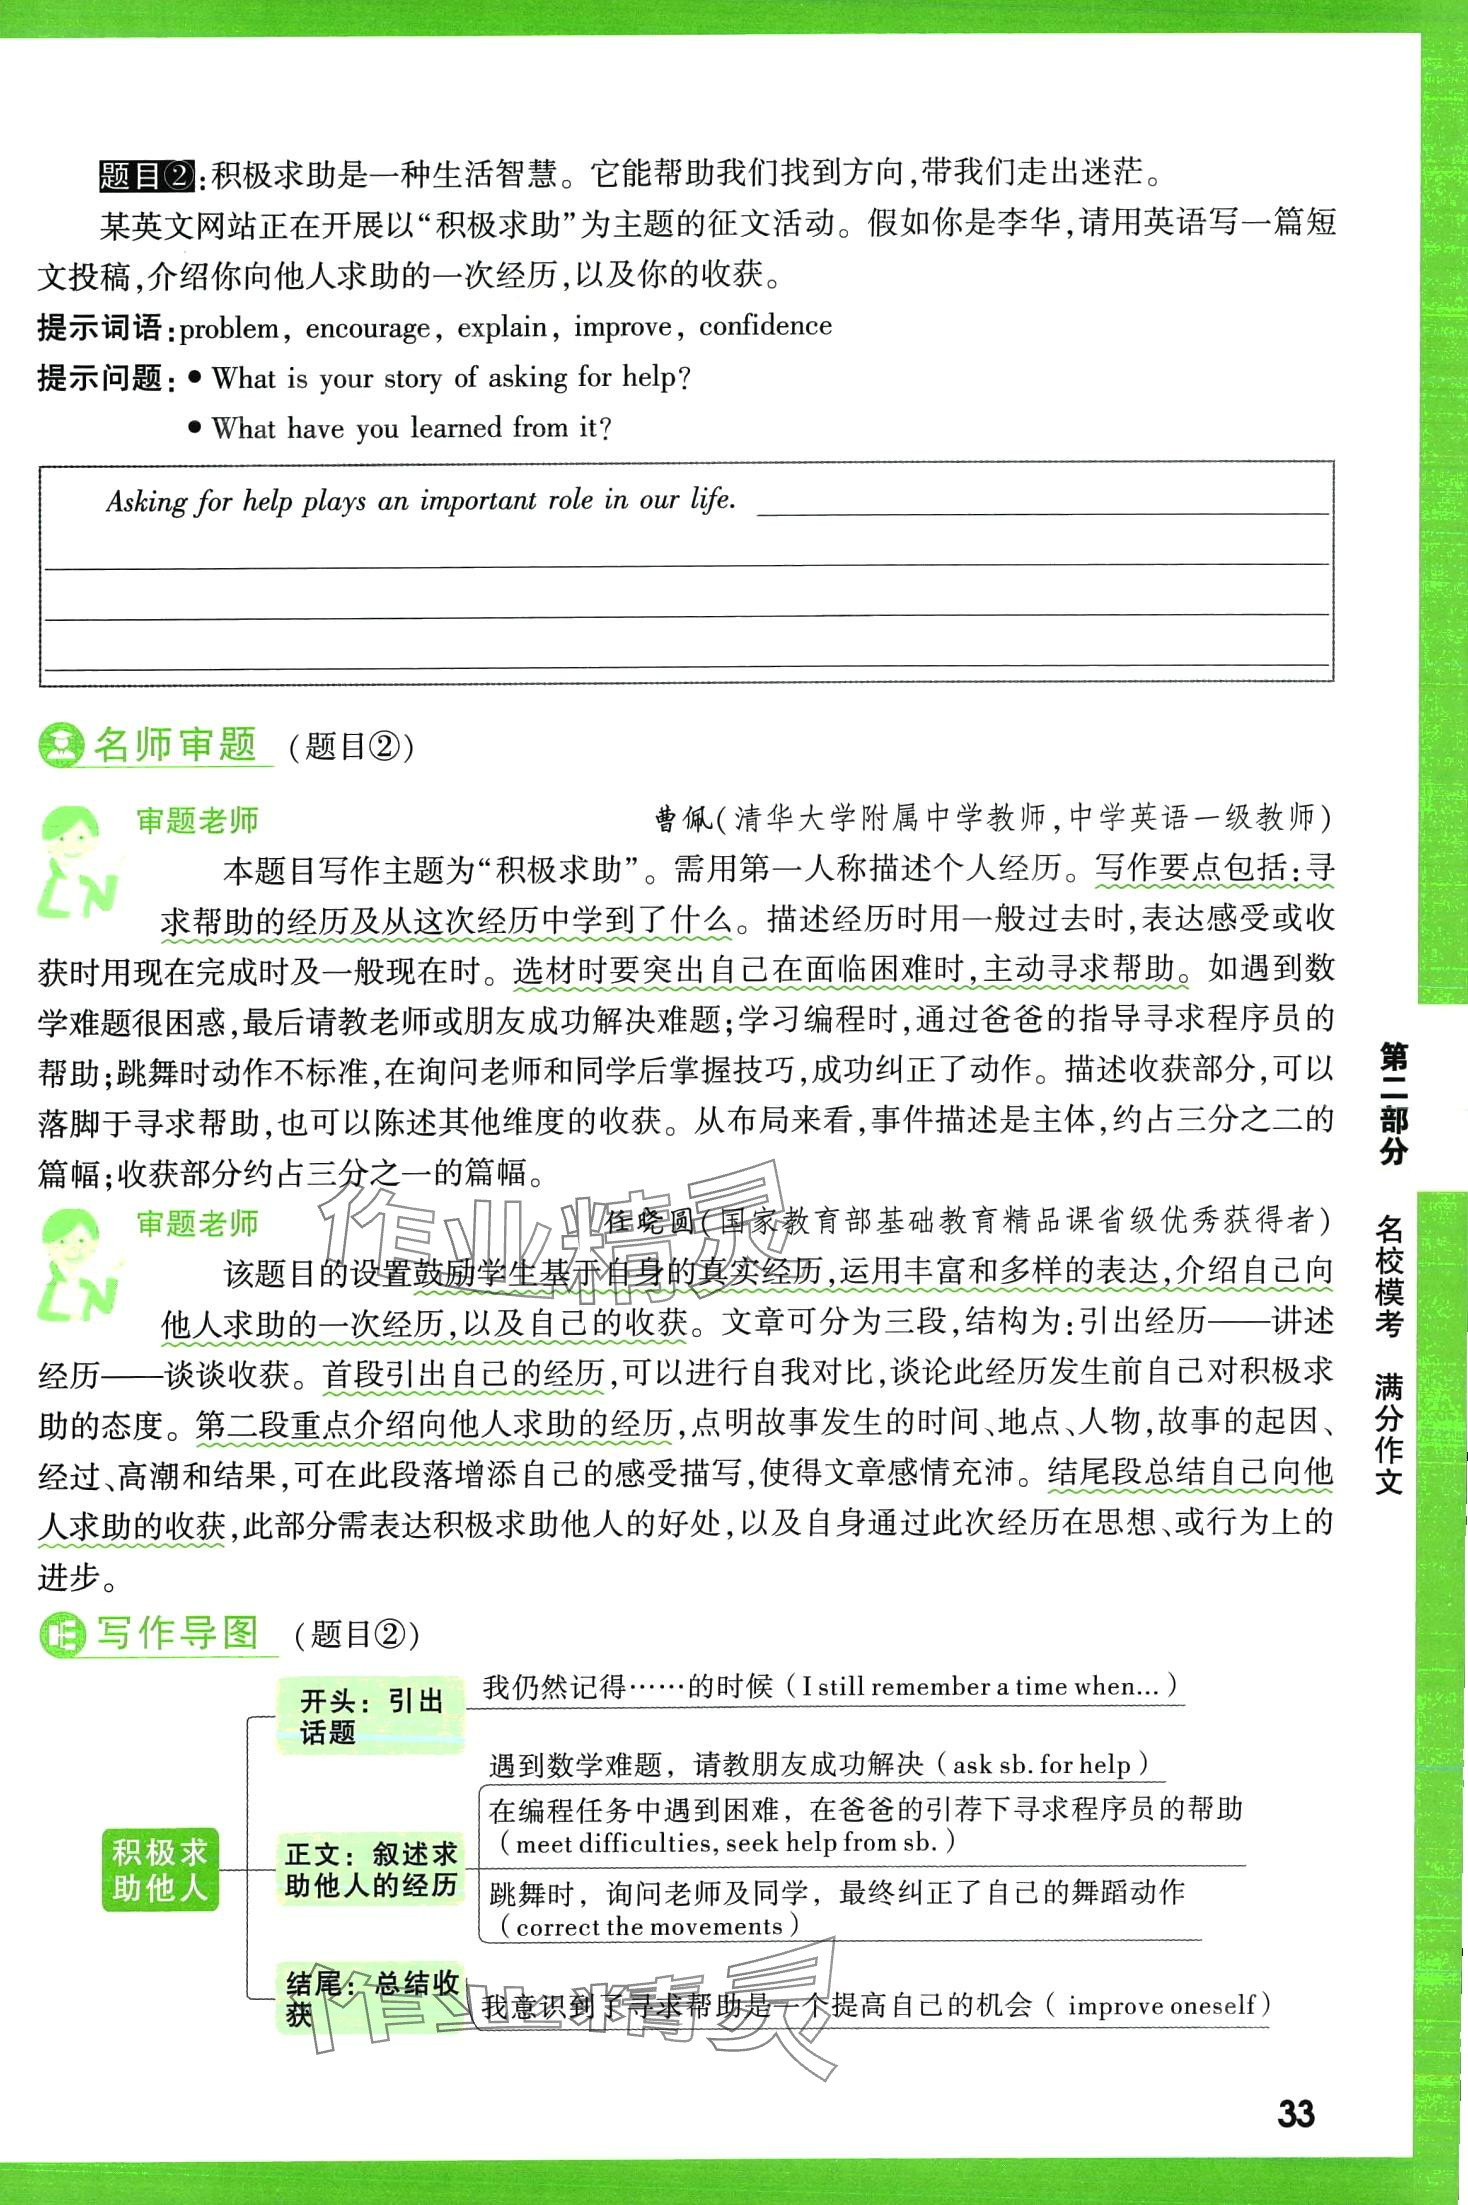 题目②:积极求助是一种生活智慧。它能帮助我们找到方向,带我们走出迷茫。
某英文网站正在开展以“积极求助”为主题的征文活动。假如你是李华,请用英语写一篇短
文投稿,介绍你向他人求助的一次经历,以及你的收获。
提示词语:problem, encourage, explain, improve, confidence
提示问题:● What is your story of asking for help?
● What have you learned from it?
Asking for help plays an important role in our life.
名师审题 (题目②)
审题老师 曹佩(清华大学附属中学教师,中学英语一级教师)
本题目写作主题为“积极求助”。需用第一人称描述个人经历。写作要点包括:寻
求帮助的经历及从这次经历中学到了什么。描述经历时用一般过去时,表达感受或收
获时用现在完成时及一般现在时。选材时要突出自己在面临困难时,主动寻求帮助。如遇到数
学难题很困惑,最后请教老师或朋友成功解决难题;学习编程时,通过爸爸的指导寻求程序员的
帮助;跳舞时动作不标准,在询问老师和同学后掌握技巧,成功纠正了动作。描述收获部分,可以
落脚于寻求帮助,也可以陈述其他维度的收获。从布局来看,事件描述是主体,约占三分之二的
篇幅;收获部分约占三分之一的篇幅。
审题老师 任晓圆(国家教育部基础教育精品课省级优秀获得者)
该题目的设置鼓励学生基于自身的真实经历,运用丰富和多样的表达,介绍自己向
他人求助的一次经历,以及自己的收获。文章可分为三段,结构为:引出经历——讲述
经历——谈谈收获。首段引出自己的经历,可以进行自我对比,谈论此经历发生前自己对积极求
助的态度。第二段重点介绍向他人求助的经历,点明故事发生的时间、地点、人物,故事的起因、
经过、高潮和结果,可在此段落增添自己的感受描写,使得文章感情充沛。结尾段总结自己向他
人求助的收获,此部分需表达积极求助他人的好处,以及自身通过此次经历在思想、或行为上的
进步。
写作导图 (题目②)
积极求
助他人
开头:引出
话题
我仍然记得……的时候(I still remember a time when...)
正文:叙述求
助他人的经历
遇到数学难题,请教朋友成功解决(ask sb. for help)
在编程任务中遇到困难,在爸爸的引荐下寻求程序员的帮助
(meet difficulties, seek help from sb.)
跳舞时,询问老师及同学,最终纠正了自己的舞蹈动作
(correct the movements)
结尾:总结收
获
我意识到了寻求帮助是一个提高自己的机会( improve oneself)
第二部分 名校模考 满分作文
33
作业精灵
作业精灵